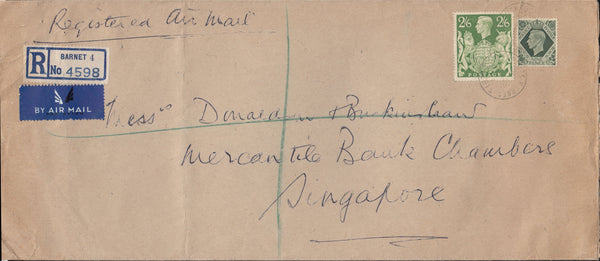 Registered Air Mail
BARNET 4
R No 4598
BY AIR MAIL
2/6 2/6
POSTAGE
Mess^rs Donaldson & Burkinshaw
Mercantile Bank Chambers
Singapore